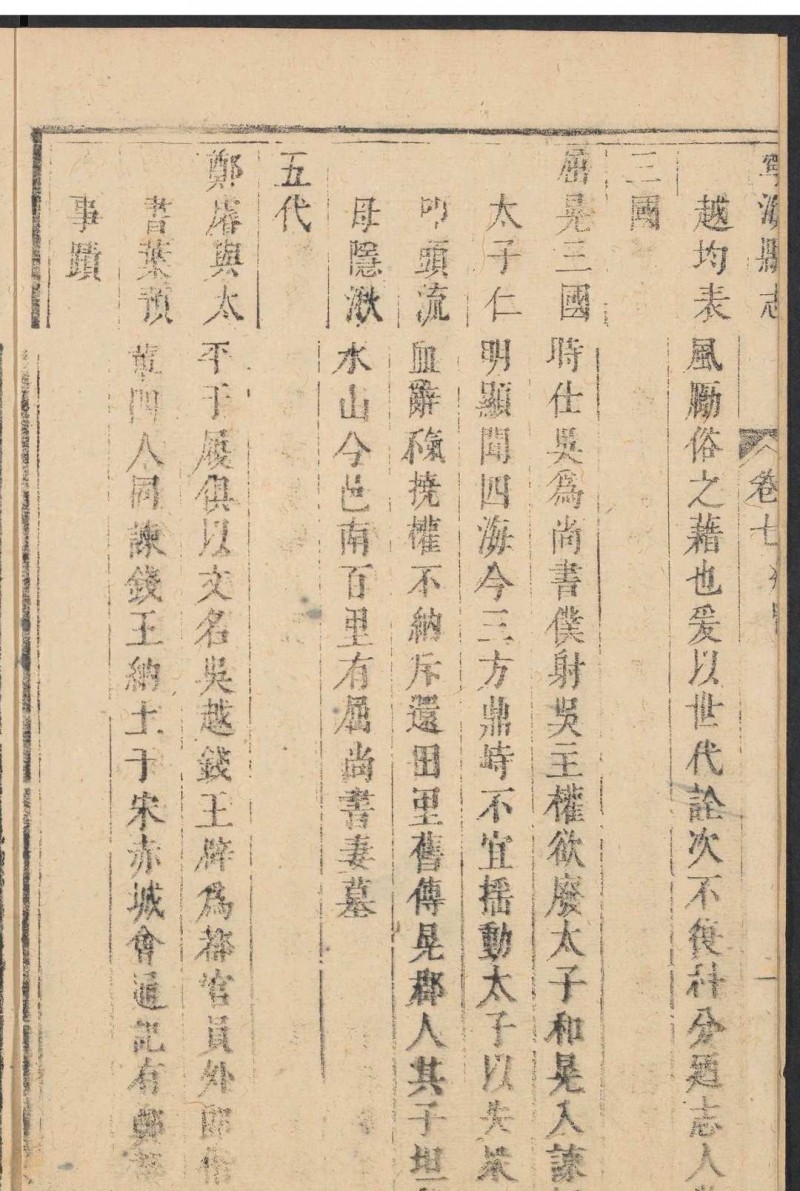 寧海縣志 卷七
越均表風勵俗之藉也爰以世代詮次不復科分題志人
三國
屈晃三國時仕吳為尚書僕射吳主權欲廢太子和晃入諫
太子仁明顯聞四海今三方鼎峙不宜揺動太子以失衆
叩頭流血辭氣不撓權不納斥還田里舊傳晃郡人其子坦
母隱湫水山今邑南百里有屈尚書妻墓
五代
鄭濬與太平于履俱以文名吳越錢王辟為都官員外郎
書葉預董四人同諫錢王納土于宋赤城會通記有鄭
事蹟